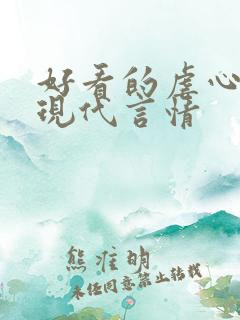 好看的虐心
現代言情
熊准明
未经同意禁止转载